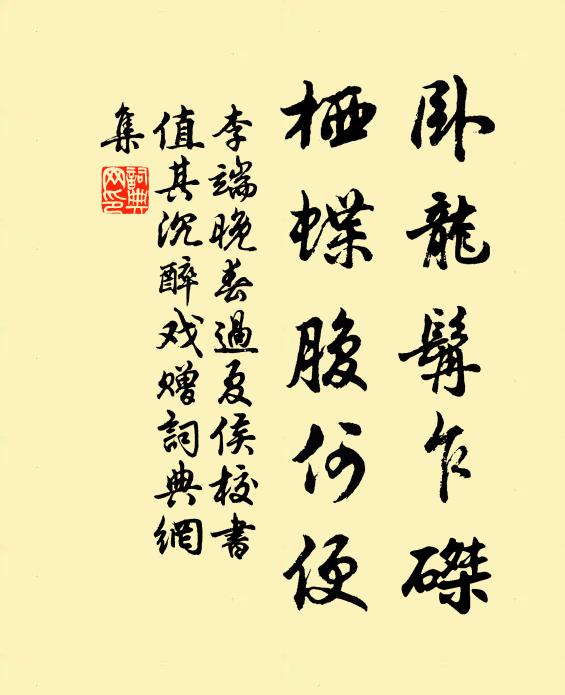 卧龍髯乍磔
栖蝶腹何便
李端晚春過夏侯校書
值其沉醉戏贈詞典網
集
詞典網印